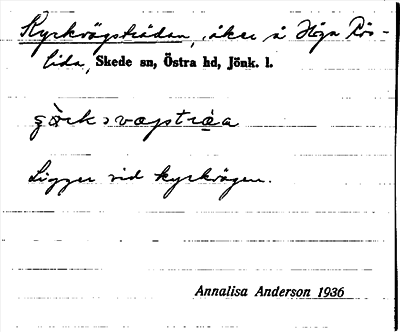 Kyrkvägsträdan, åker å Höga Rös-
lida, Skede sn, Östra hd, Jönk. l.
Ligger vid kyrkvägen.
Annalisa Anderson 1936